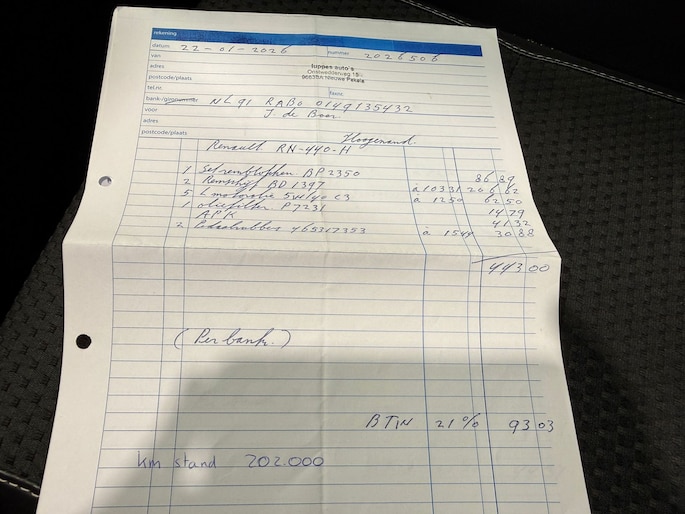 rekening
datum 22-01-2026 nummer 2026506
van luppes auto's
adres
postcode/plaats 9663 Nieuwe Pekela
tel.nr. fax.nr.
bank-/gironummer NL 91 RABO 0149135432
voor J. de Boer
adres
postcode/plaats Hoogezand.
Renault RN-440-H
1 Set remblokken BP2350 86 89
2 BD 1397 a 10331 206 62
5 L motorolie 5W40 C3 a 1250 62 50
1 oliefilter P7231 14.79
APK 41.32
2 465317353 a 1544 30.88
443.00
(Per bank.)
BTW 21% 93 03
km stand 202.000